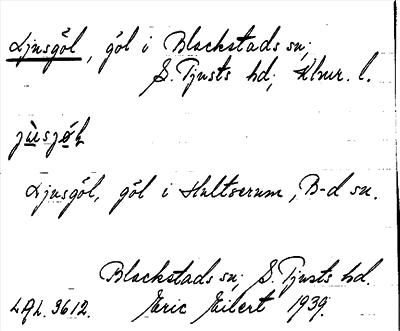 Ljusgöl, göl i Blackstads sn;
S. Tjusts hd; Klmr. l.
jùsjö́ɫ
Ljusgöl, göl i Hultserum, B-d sn.
Blackstads sn; S. Tjusts hd.
LAL. 3612. Eric Eilert 1939.